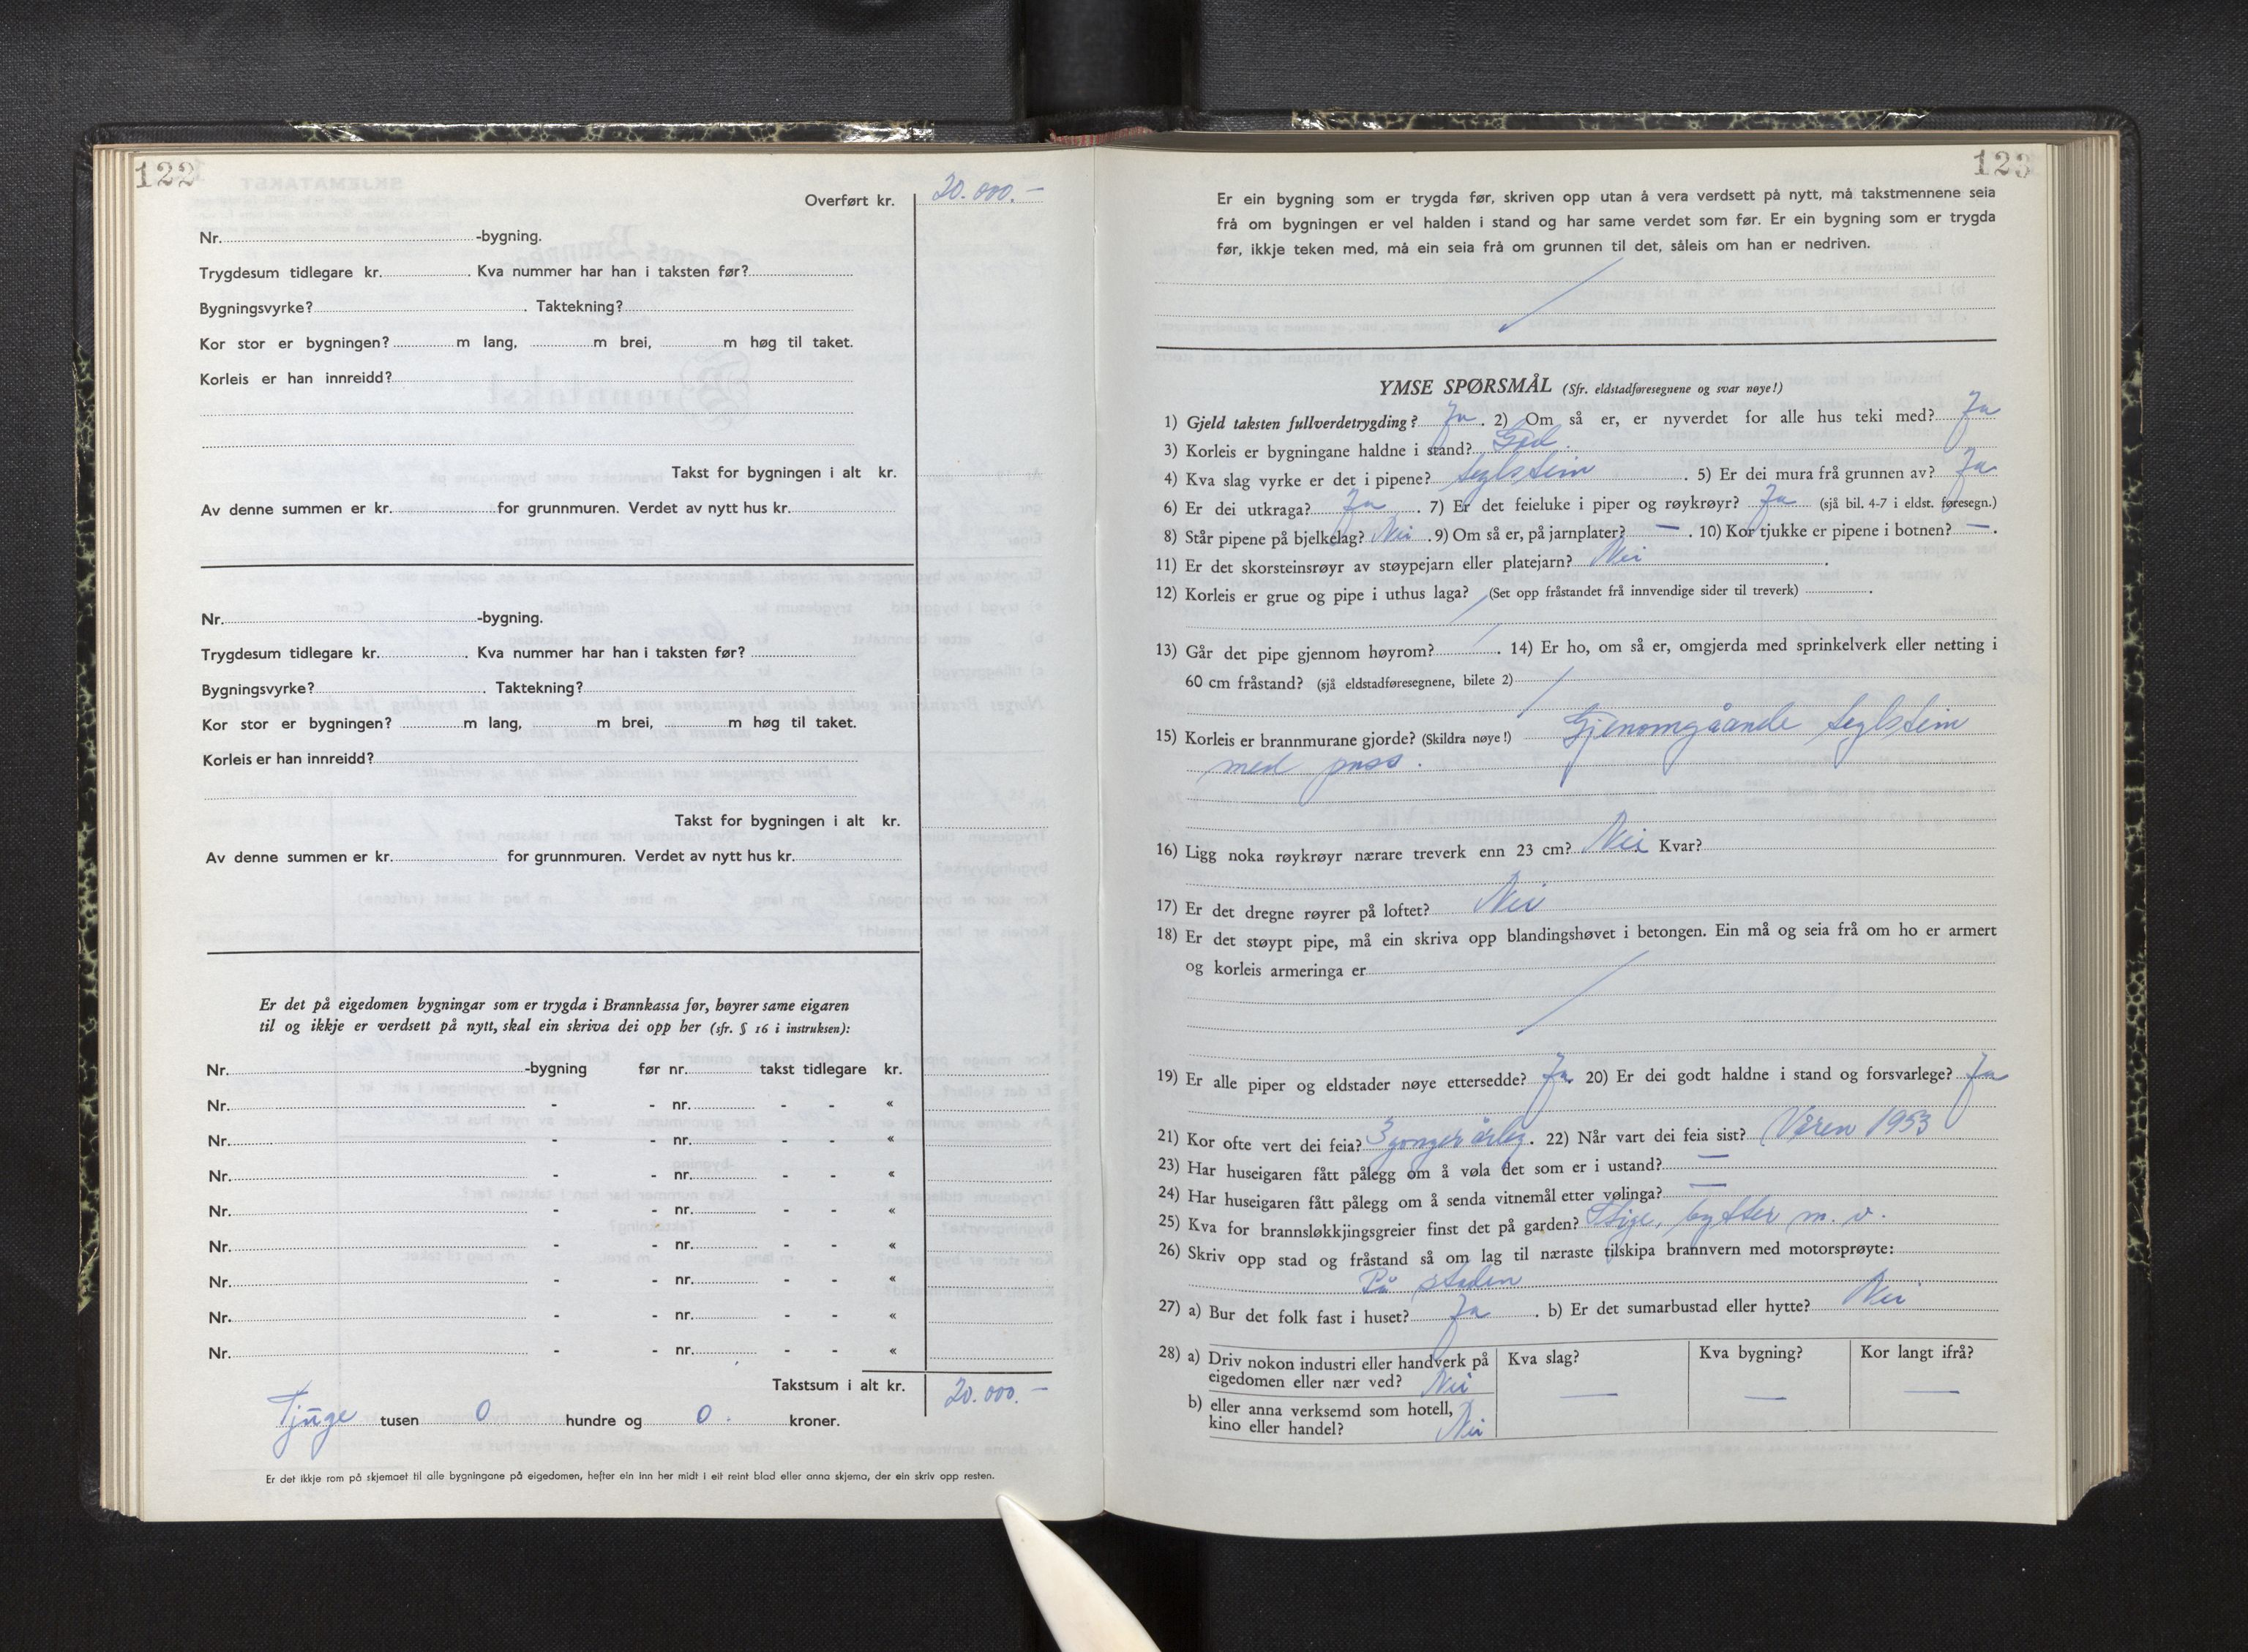 122
Overført kr. 20.000.-
Nr. -bygning.
Trygdesum tidlegare kr. . Kva nummer har han i taksten før?
Bygningsvyrke? . Taktekning?
Kor stor er bygningen? m lang, m brei, m høg til taket.
Korleis er han innreidd?
Takst for bygningen i alt kr.
Av denne summen er kr. for grunnmuren. Verdet av nytt hus kr.
Nr. -bygning.
Trygdesum tidlegare kr. . Kva nummer har han i taksten før?
Bygningsvyrke? . Taktekning?
Kor stor er bygningen? m lang, m brei, m høg til taket.
Korleis er han innreidd?
Takst for bygningen i alt kr.
Av denne summen er kr. for grunnmuren. Verdet av nytt hus kr.
Er det på eigedomen bygningar som er trygda i Brannkassa før, høyrer same eigaren
til og ikkje er verdsett på nytt, skal ein skriva dei opp her (sfr. § 16 i instruksen):
Nr. -bygning før nr. takst tidlegare kr.
Nr. - - nr. - - «
Nr. - - nr. - - «
Nr. - - nr. - - «
Nr. - - nr. - - «
Nr. - - nr. - - «
Nr. - - nr. - - «
Nr. - - nr. - - «
Nr. - - nr. - - «
Takstsum i alt kr. 20.000.-
Tjuge tusen 0 hundre og 0. kroner.
Er det ikkje rom på skjemaet til alle bygningane på eigedomen, hefter ein inn her midt i eit reint blad eller anna skjema, der ein skriv opp resten.
123
Er ein bygning som er trygda før, skriven opp utan å vera verdsett på nytt, må takstmennene seia
frå om bygningen er vel halden i stand og har same verdet som før. Er ein bygning som er trygda
før, ikkje teken med, må ein seia frå om grunnen til det, såleis om han er nedriven.
YMSE SPØRSMÅL (Sfr. eldstadføresegnene og svar nøye!)
1) Gjeld taksten fullverdetrygding? Ja . 2) Om så er, er nyverdet for alle hus teki med? Ja
3) Korleis er bygningane haldne i stand? God.
4) Kva slag vyrke er det i pipene? teglstein . 5) Er dei mura frå grunnen av? Ja
6) Er dei utkraga? Ja . 7) Er det feieluke i piper og røykrøyr? Ja (sjå bil. 4-7 i eldst. føresegn.)
8) Står pipene på bjelkelag? Nei . 9) Om så er, på jarnplater? — . 10) Kor tjukke er pipene i botnen? — .
11) Er det skorsteinsrøyr av støypejarn eller platejarn? Nei .
12) Korleis er grue og pipe i uthus laga? (Set opp fråstandet frå innvendige sider til treverk) .
13) Går det pipe gjennom høyrom? . 14) Er ho, om så er, omgjerda med sprinkelverk eller netting i
60 cm fråstand? (sjå eldstadføresegnene, bilete 2)
15) Korleis er brannmurane gjorde? (Skildra nøye!) Gjenomgåande teglstein
med puss.
16) Ligg noka røykrøyr nærare treverk enn 23 cm? Nei Kvar?
17) Er det dregne røyrer på loftet? Nei
18) Er det støypt pipe, må ein skriva opp blandingshøvet i betongen. Ein må og seia frå om ho er armert
og korleis armeringa er
19) Er alle piper og eldstader nøye ettersedde? Ja. 20) Er dei godt haldne i stand og forsvarlege? Ja
21) Kor ofte vert dei feia? 3 gonger årleg. 22) Når vart dei feia sist? Våren 1953
23) Har huseigaren fått pålegg om å vøla det som er i ustand? —
24) Har huseigaren fått pålegg om å senda vitnemål etter vølinga? —
25) Kva for brannsløkkjingsgreier finst det på garden? Stige, bytter m. v.
26) Skriv opp stad og fråstand så om lag til næraste tilskipa brannvern med motorsprøyte:
På staden
27) a) Bur det folk fast i huset? Ja . b) Er det sumarbustad eller hytte? Nei
28) a) Driv nokon industri eller handverk på Kva slag? Kva bygning? Kor langt ifrå?
eigedomen eller nær ved? Nei — — —
b) eller anna verksemd som hotell,
kino eller handel? Nei